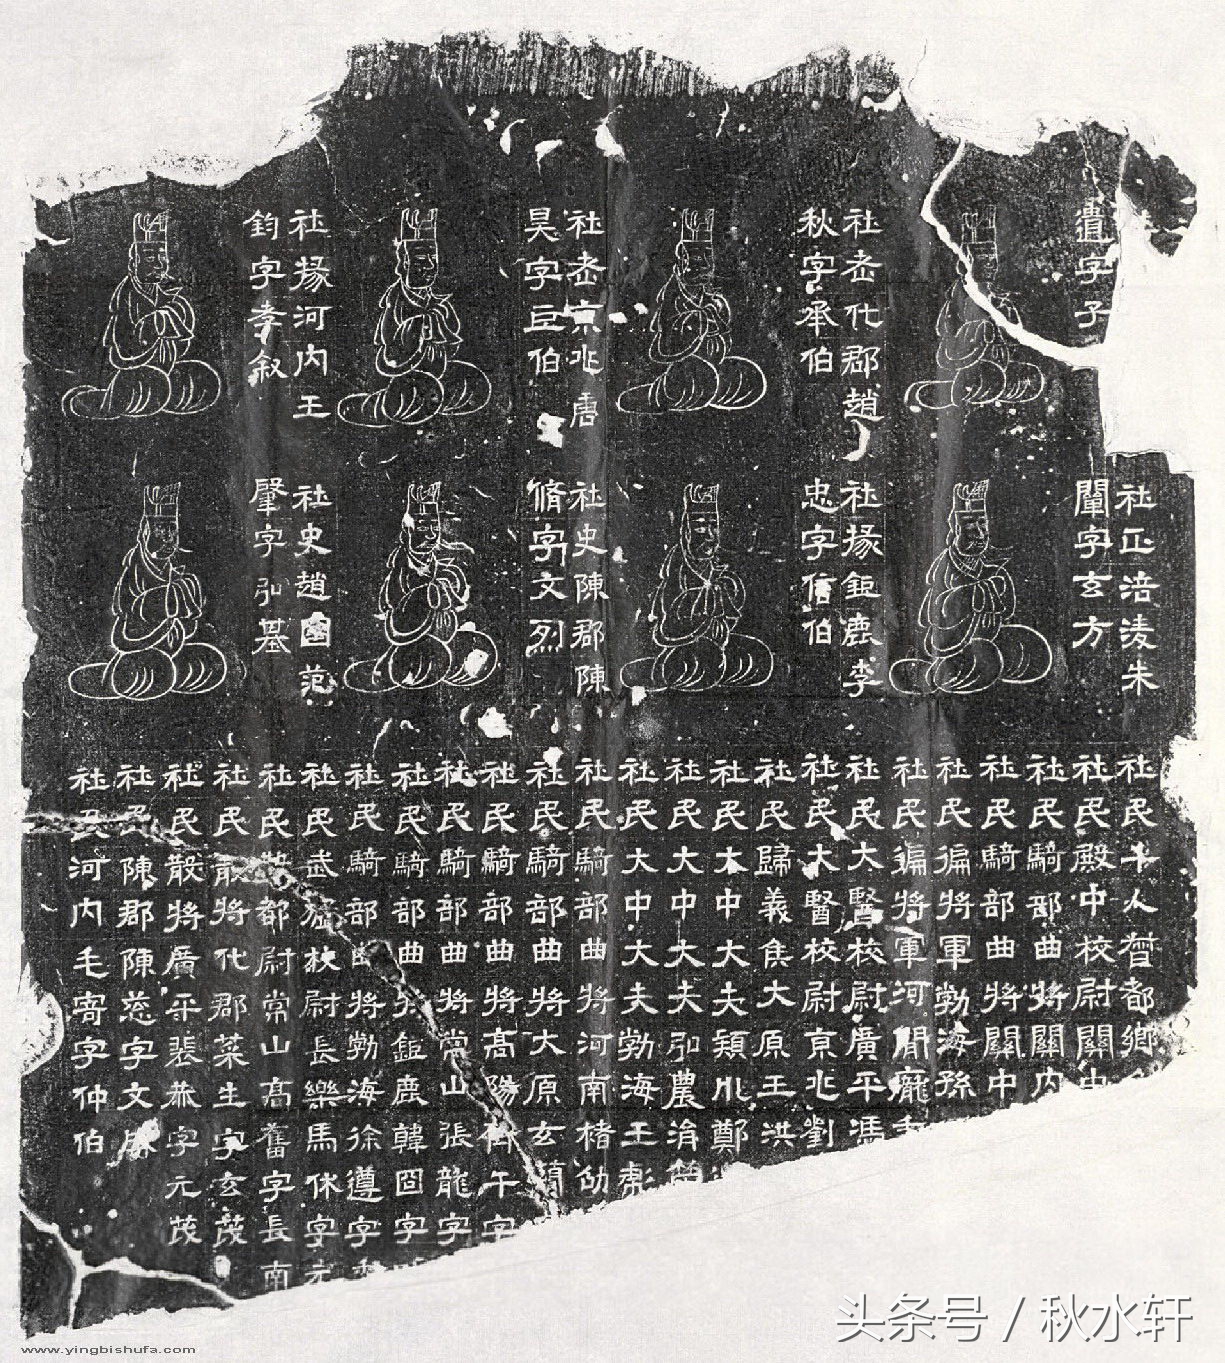 遺字子
社老代郡趙
秋字承伯
社老京兆唐
昊字巨伯
社掾河内王
鈞字孝叙
社正涪淩朱
闡字玄方
社掾鉅鹿李
忠字信伯
社史陳郡陳
脩字文烈
社史趙國范
肇字弘基
社民千人督都鄉
社民殿中校尉關中
社民騎部曲將關内
社民騎部曲將關中
社民偏將軍勃海孫
社民偏將軍河間龐
社民大醫校尉廣平馮
社民大醫校尉京兆劉
社民歸義侯大原王洪
社民大中大夫潁川鄭
社民大中大夫弘農
社民大中大夫勃海王
社民騎部曲將河南楮
社民騎部曲將大原玄
社民騎部曲將高陽午字
社民騎部曲將常山張龍字
社民騎部曲將鉅鹿韓囧字
社民騎部曲將勃海徐遵字
社民武猛校尉長樂馬休字元
社民牙都尉常山高舊字長南
社民散將代郡菜生字玄茂
社民散將廣平裴恭字元茂
社民陳郡陳慈字文
社民河内毛寄字仲伯
头条号 / 秋水轩
www.yingbishufa.com